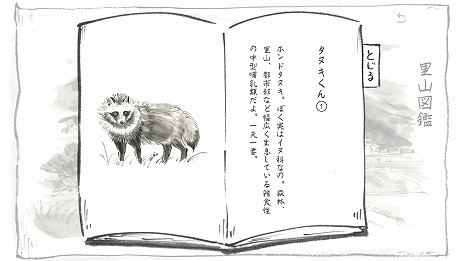 里山図鑑
とじる
タヌキくん①
ホンドタヌキ。ぼく実はイヌ科なの。森林、
里山、都市部など幅広く生息している雑食性
の中型哺乳類だよ。一夫一妻。